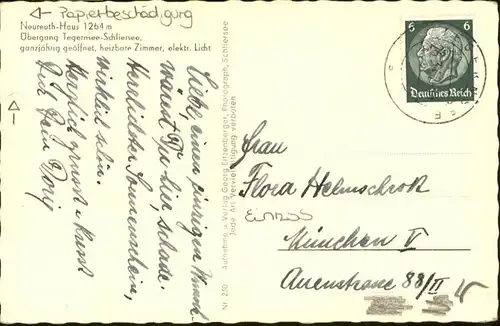 Papierbeschädigung
Neureuth-Haus 1264 m
Übergang Tegernsee-Schliersee,
ganzjährig geöffnet, heizbare Zimmer, elektr. Licht
Liebe, einen einzigen Wunsch
wärest Du hier, schade.
Herrlichster Sonnenschein,
wirklich schön.
Herzlich grüsst u. küsst
Dich Dein
Nr. 250 Aufnahme u. Verlag Georg Eitzenberger, Photograph, Schliersee
Jede Art Vervielfältigung verboten
6 6
Deutsches Reich
Frau
Flora Helmschrott
EINRISS
München V
Auenstrasse 88/II